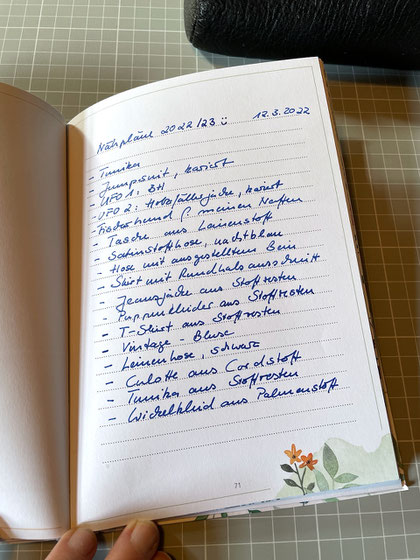 Nähpläne 2022/23 ☺ 12.3.2022
- Tunika
- Jumpsuit, kariert
- UFO 1: BH
- UFO 2: Holzfällerjacke, kariert
- Fischerhemd f. meinen Neffen
- Tasche aus Leinenstoff
- Satinstoffhose, nachtblau
- Hose mit ausgestelltem Bein
- Shirt mit Rundhalsausschnitt
- Jeansjacke aus Stoffresten
- Puppenkleider aus Stoffresten
- T-Shirt aus Stoffresten
- Vintage-Bluse
- Leinenhose, schwarz
- Culotte aus Cordstoff
- Tunika aus Stoffresten
- Wickelkleid aus Palmenstoff
71